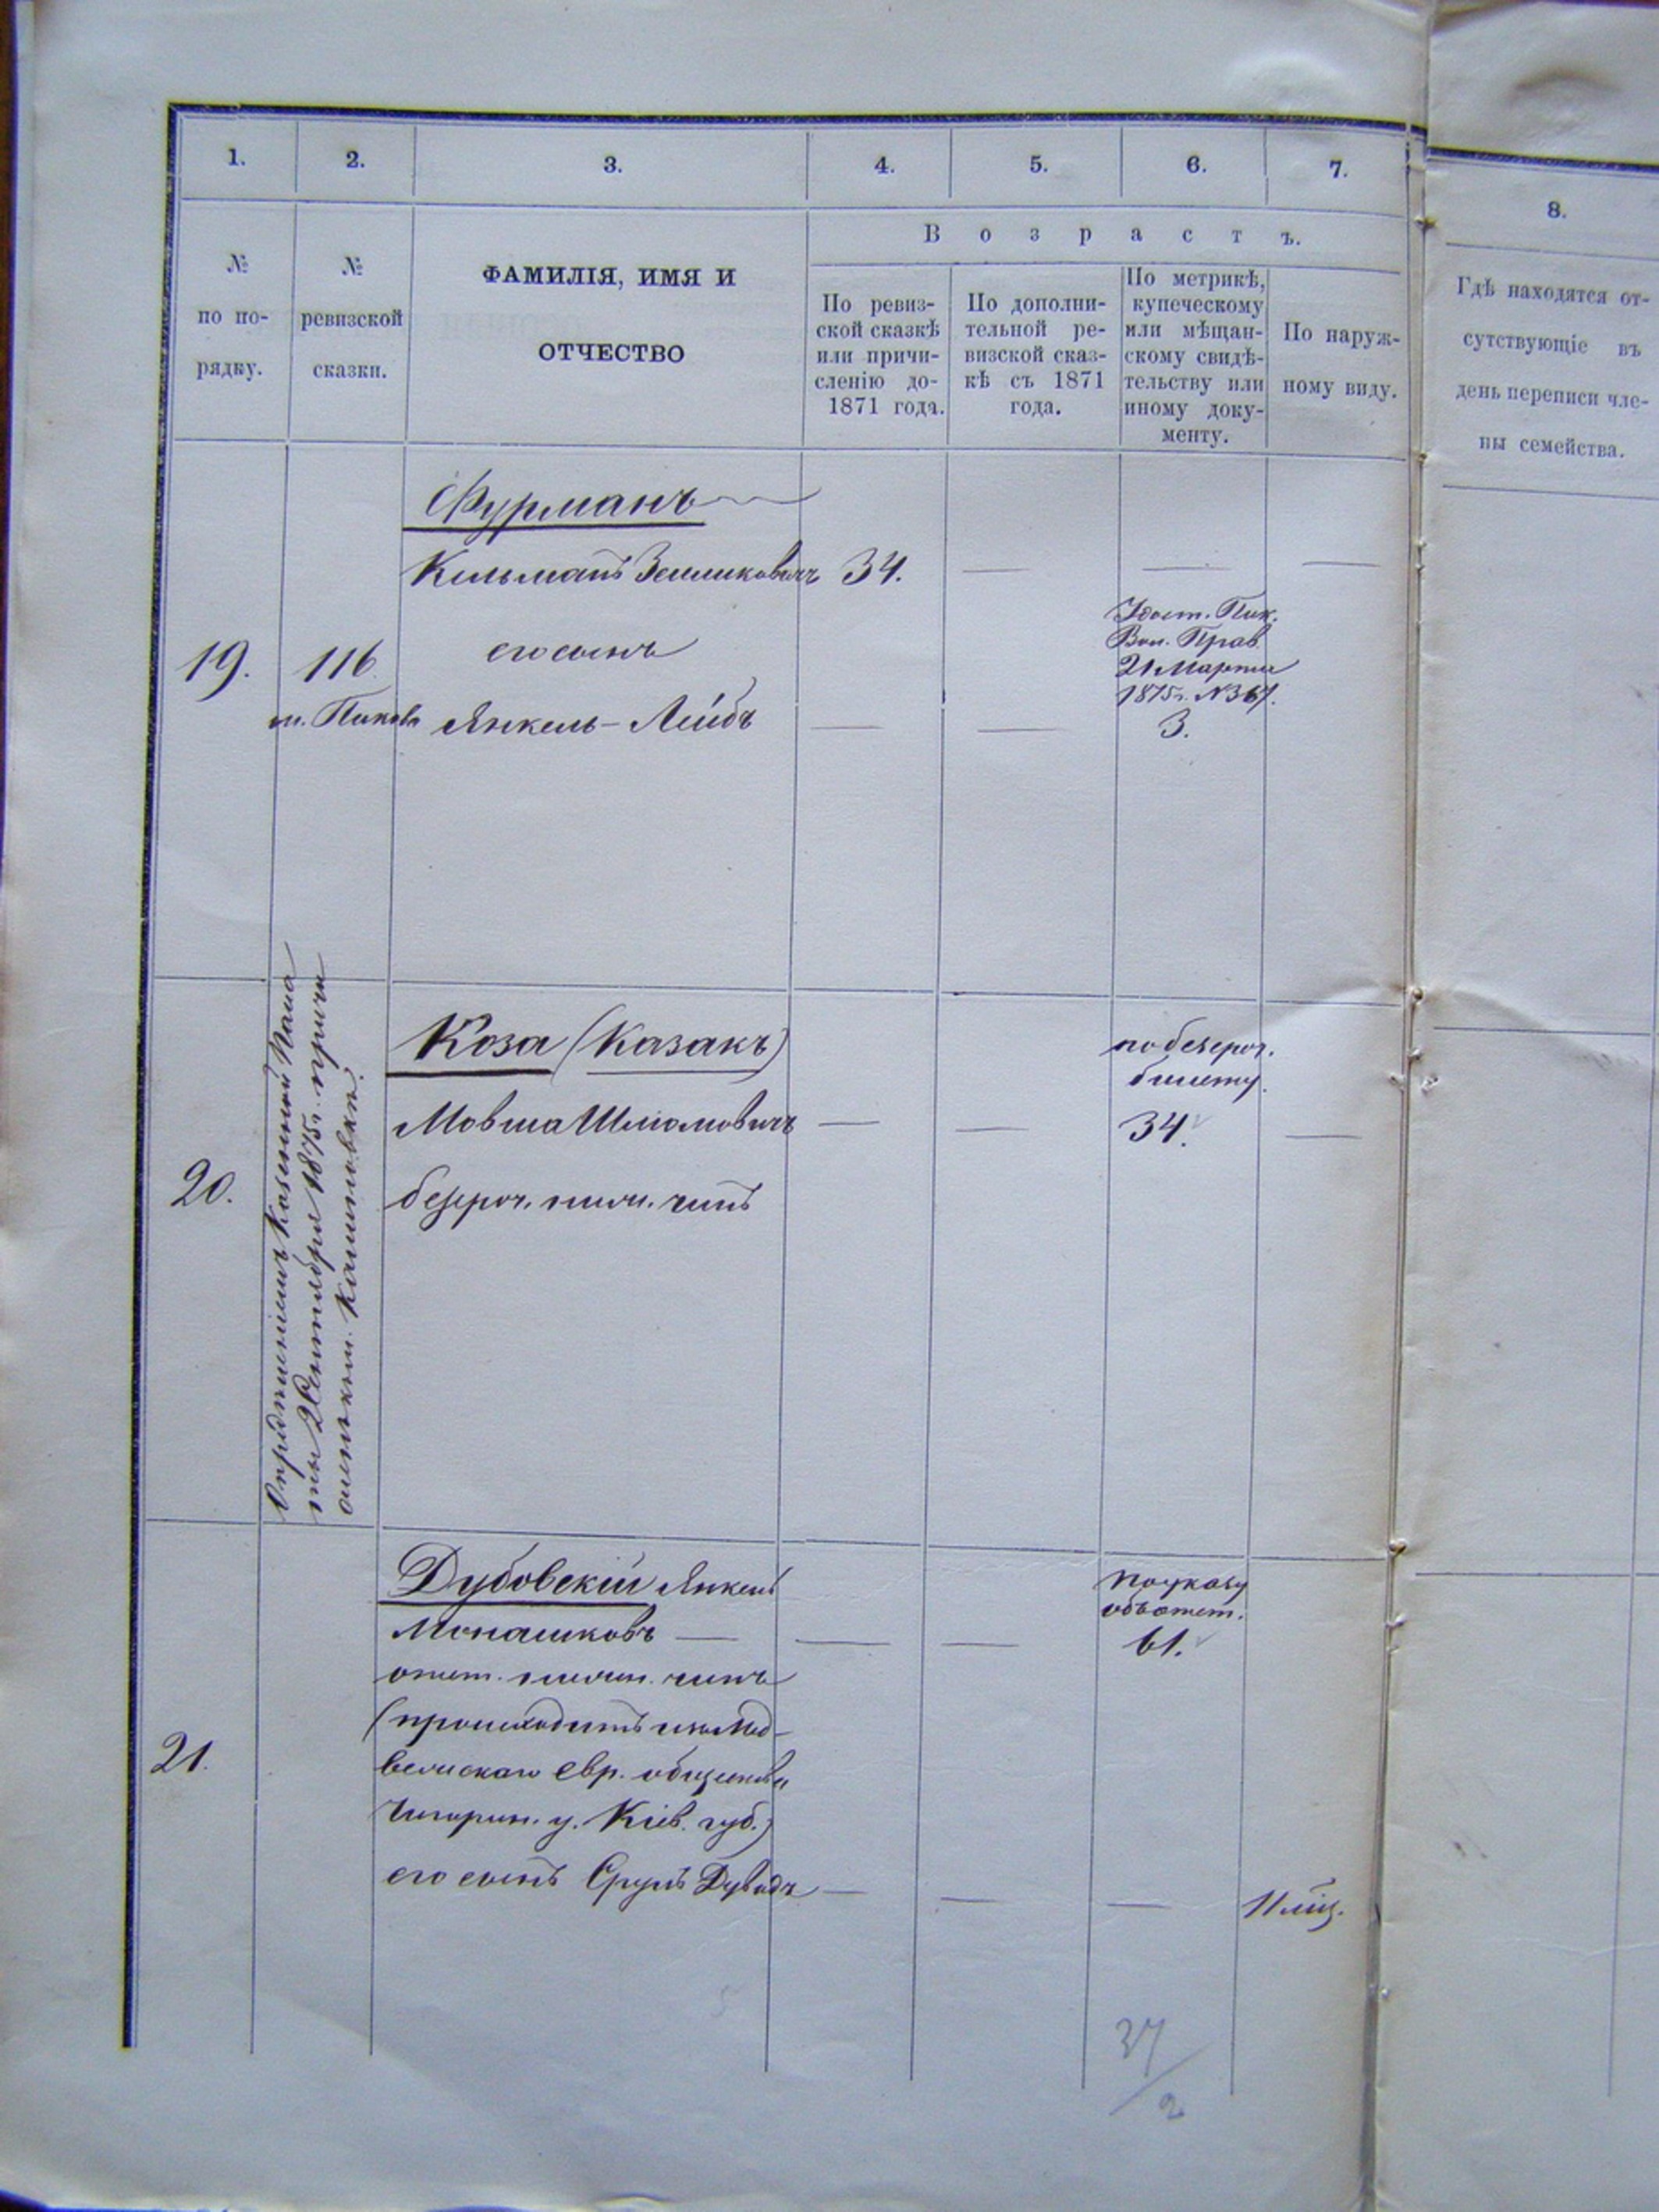 1.
2.
3.
4.
5.
6.
7.
8.
№
по по-
рядку.
№
ревизской
сказки.
ФАМИЛІЯ, ИМЯ И
ОТЧЕСТВО
Возрастъ.
По ревиз-
ской сказкѣ
или причи-
сленію до-
1871 года.
По дополни-
тельной ре-
визской сказ-
кѣ съ 1871
года.
По метрикѣ,
купеческому
или мѣщан-
скому свидѣ-
тельству или
иному доку-
менту.
По наруж-
ному виду.
Гдѣ находятся от-
сутствующіе въ
день переписи чле-
ны семейства.
19.
116
м. Пикова
Фурманъ
Кельманъ Зейликовичъ 34. — — —
его сынъ
Янкель-Лейбъ — —
Удост. Пик.
Вол. Прав.
21 Марта
1875 г. № 367.
3.
20.
Опредѣленіемъ Казенной Пала
ты 2 Сентября 1875 г. причи
сленъ къ м. Калиновкѣ.
Коза (Казакъ)
Мовша Шлиомовичъ — —
безсроч. нижн. чинъ
по безсроч.
билету.
34. —
21.
Дубовскій Янкель
Монашковъ — — —
отст. нижн. чинъ
(происходитъ изъ Мед-
велискаго евр. общества
Чигирин. у. Кіев. губ.)
его сынъ Сруль Дувидъ — — — 11 мѣс.
по указу
объ отст.
61.
37
2